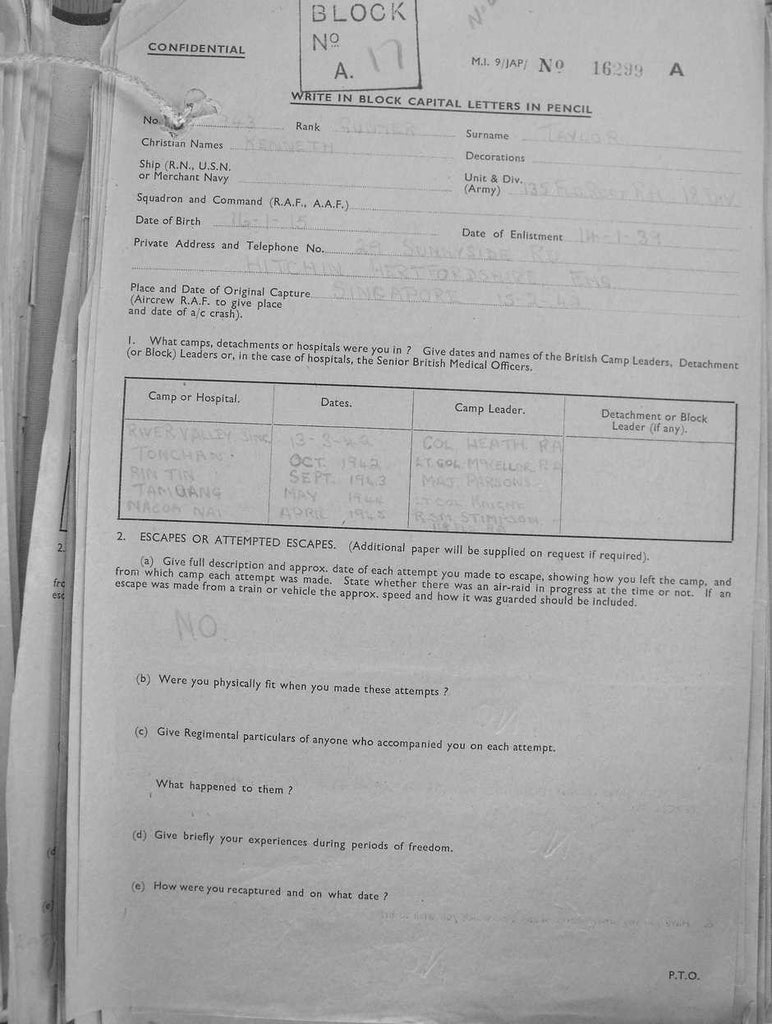 BLOCK
Nº
A. 17
CONFIDENTIAL
M.I. 9/JAP/ Nº 16299 A
WRITE IN BLOCK CAPITAL LETTERS IN PENCIL
No. Rank GUNNER Surname TAYLOR
Christian Names KENNETH Decorations
Ship (R.N., U.S.N. or Merchant Navy Unit & Div. (Army) 135 FLD REGT R.A. 18 DIV.
Squadron and Command (R.A.F., A.A.F.)
Date of Birth 16-1-15 Date of Enlistment 14-1-39
Private Address and Telephone No. 29 SUNNYSIDE RD
HITCHIN HERTFORDSHIRE ENG
Place and Date of Original Capture SINGAPORE 15-2-42
(Aircrew R.A.F. to give place
and date of a/c crash).
1. What camps, detachments or hospitals were you in ? Give dates and names of the British Camp Leaders, Detachment
(or Block) Leaders or, in the case of hospitals, the Senior British Medical Officers.
Camp or Hospital. Dates. Camp Leader. Detachment or Block Leader (if any).
RIVER VALLEY SING 13-3-42 COL HEATH RA
TONCHAN OCT. 1942 LT COL McKELLOR RA
RIN TIN SEPT. 1943 MAJ PARSONS
TAMUANG MAY 1944 LT COL KNIGHT
NACOM NAI APRIL 1945 R.S.M. STIMPSON
2. ESCAPES OR ATTEMPTED ESCAPES. (Additional paper will be supplied on request if required).
(a) Give full description and approx. date of each attempt you made to escape, showing how you left the camp, and
from which camp each attempt was made. State whether there was an air-raid in progress at the time or not. If an
escape was made from a train or vehicle the approx. speed and how it was guarded should be included.
NO.
(b) Were you physically fit when you made these attempts ?
(c) Give Regimental particulars of anyone who accompanied you on each attempt.
What happened to them ?
(d) Give briefly your experiences during periods of freedom.
(e) How were you recaptured and on what date ?
P.T.O.